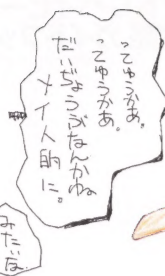 ってゆうかあ。
ってゆうかあ。
だいぢょうぶなんかね
メイ人的に。
みたいな